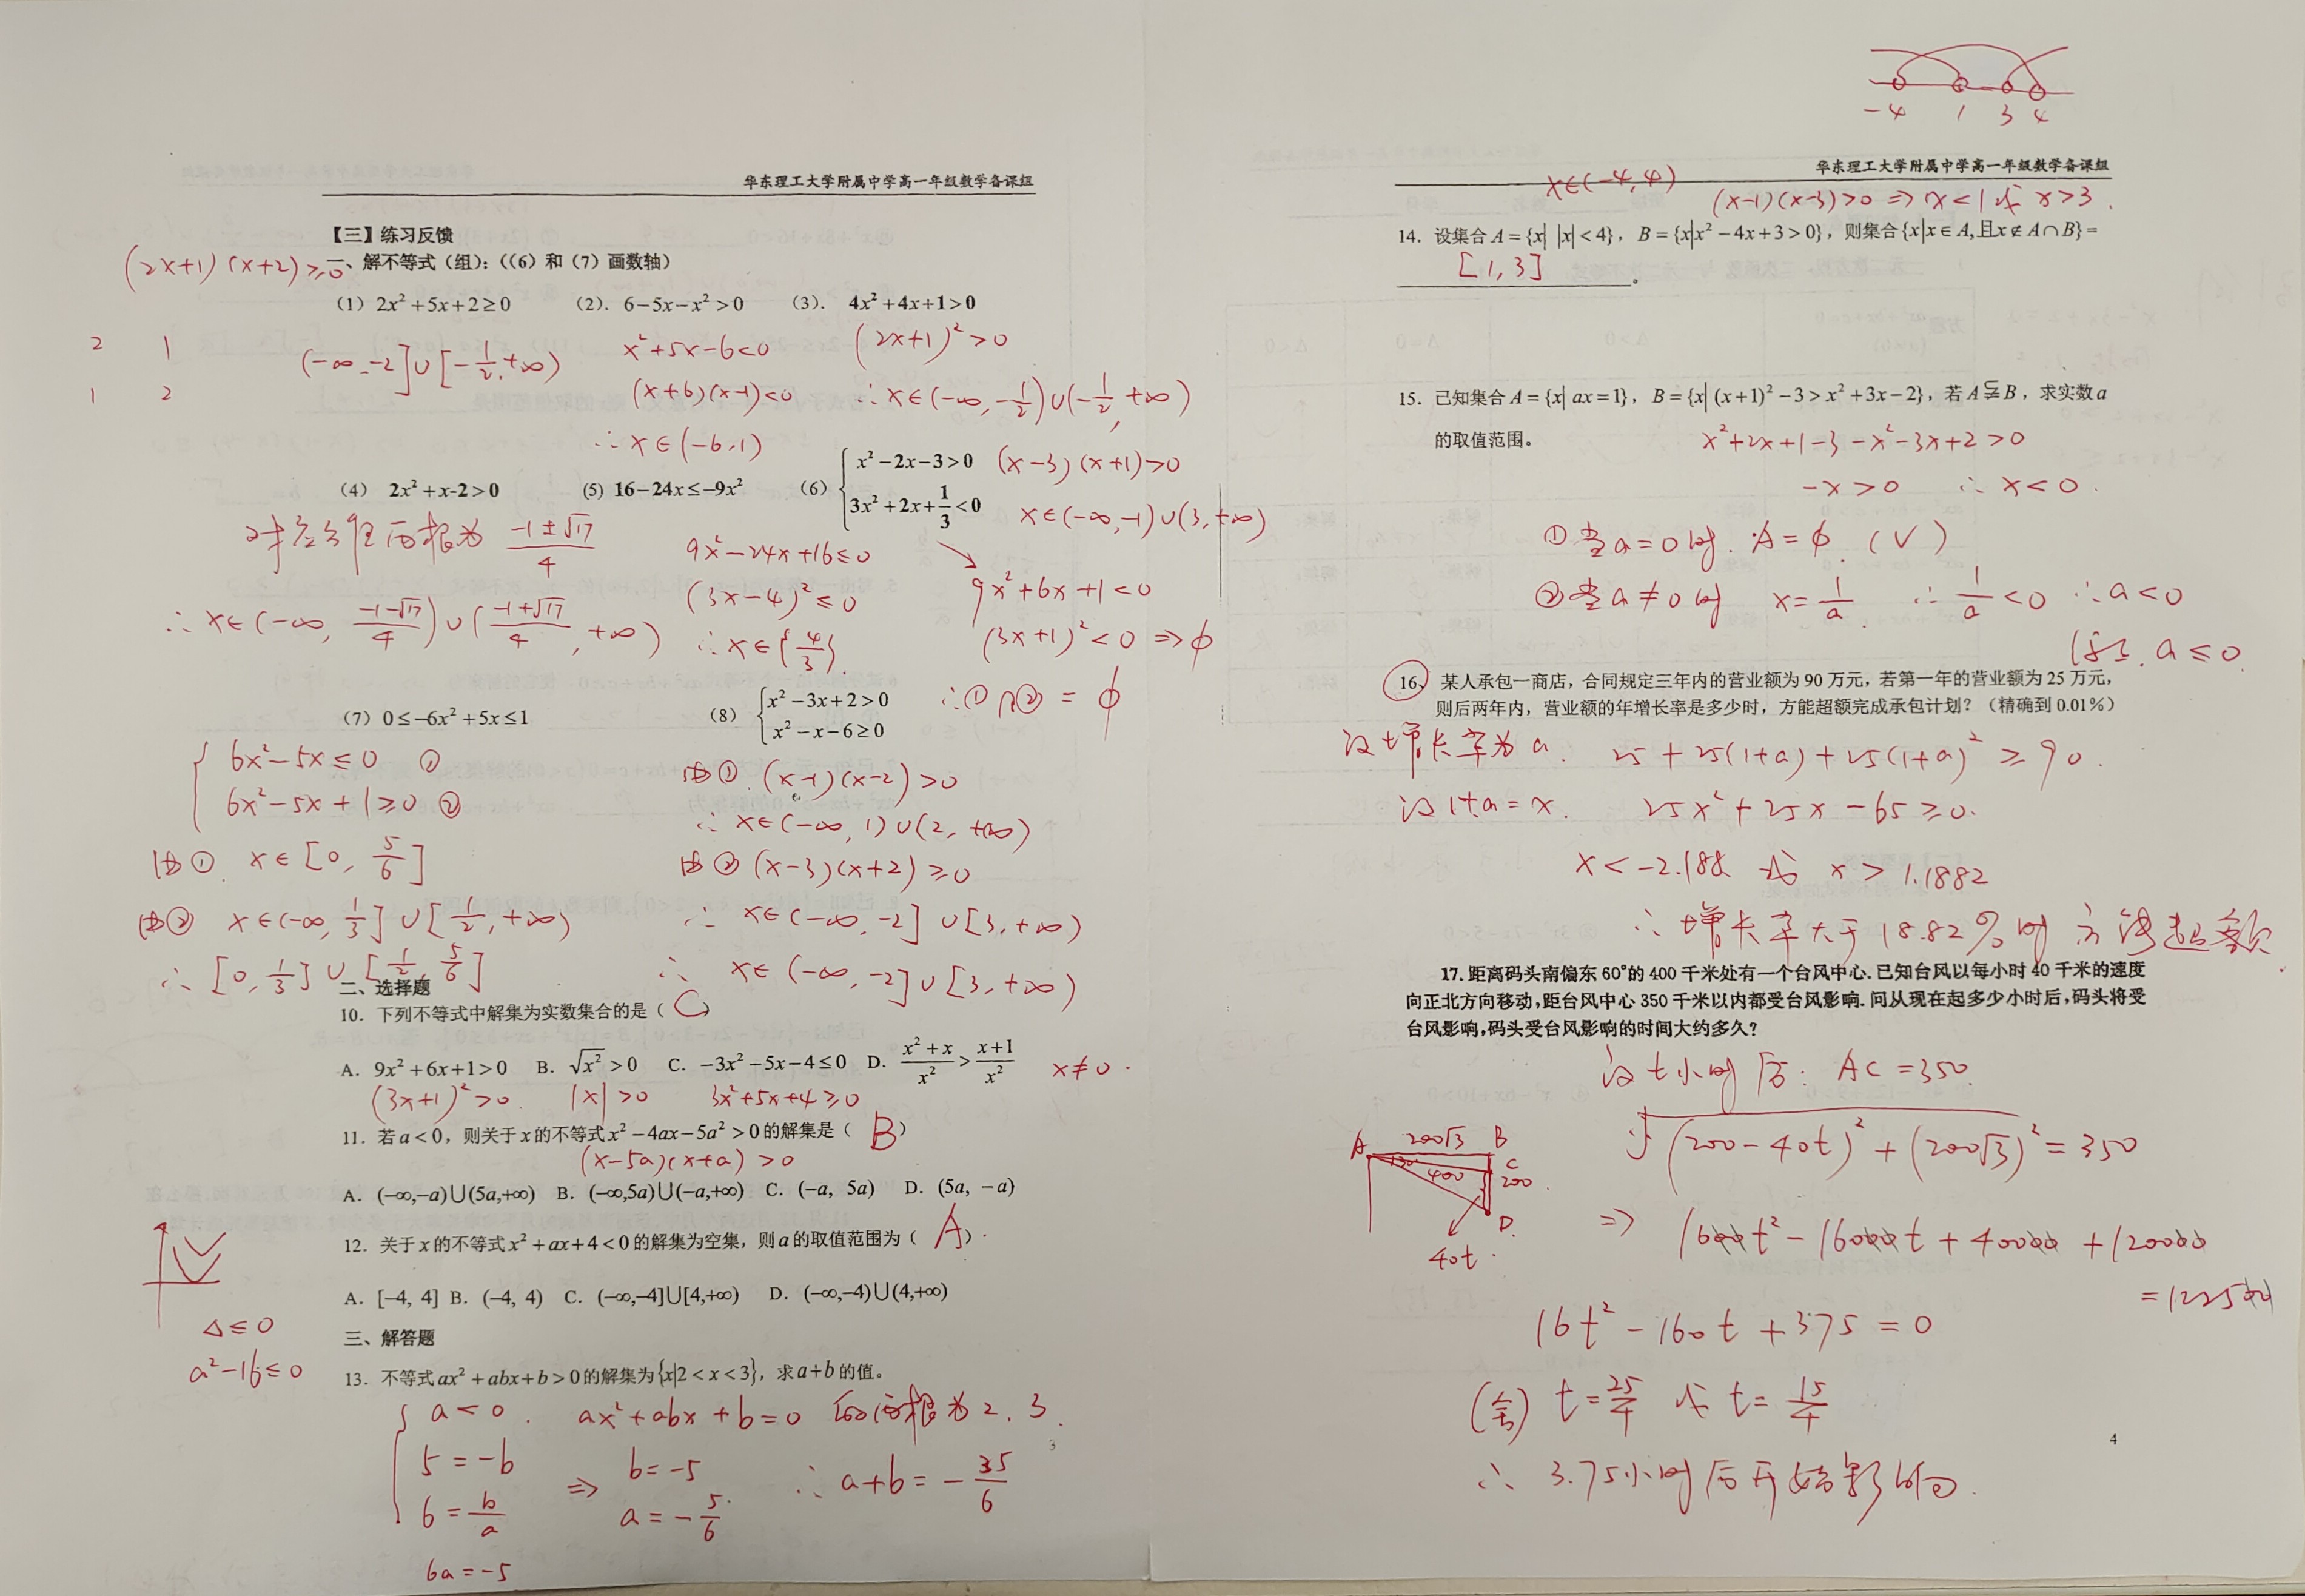 华东理工大学附属中学高一年级数学备课组
【三】练习反馈
(2x+1)(x+2)≥0
一、解不等式（组）：（（6）和（7）画数轴）
（1）2x²+5x+2≥0 （2）. 6−5x−x²>0 （3）. 4x²+4x+1>0
2 1
1 2
(-∞,-2]∪[-1/2,+∞)
x²+5x-6<0
(x+6)(x-1)<0
∴x∈(-6,1)
(2x+1)²>0
∴x∈(-∞,-1/2)∪(-1/2,+∞)
（4） 2x²+x-2>0 (5) 16−24x≤−9x² （6）{x²−2x−3>0 3x²+2x+1/3<0
对应方程两根为 (-1±√17)/4
∴x∈(-∞, (-1-√17)/4)∪((-1+√17)/4, +∞)
9x²-24x+16≤0
(3x-4)²≤0
∴x∈{4/3}.
(x-3)(x+1)>0
x∈(-∞,-1)∪(3,+∞)
9x²+6x+1<0
(3x+1)²<0 ⇒ϕ
∴①∩②=ϕ
（7）0≤−6x²+5x≤1 （8）{x²−3x+2>0 x²−x−6≥0
{6x²-5x≤0 ①
6x²-5x+1≥0 ②
由① x∈[0, 5/6]
由② x∈(-∞, 1/3]∪[1/2,+∞)
∴[0,1/3]∪[1/2,5/6]
由① (x-1)(x-2)>0
∴x∈(-∞,1)∪(2,+∞)
由② (x-3)(x+2)≥0
∴x∈(-∞,-2]∪[3,+∞)
∴ x∈(-∞,-2]∪[3,+∞)
二、选择题
10．下列不等式中解集为实数集合的是（C）
A．9x²+6x+1>0 B．√x²>0 C．−3x²−5x−4≤0 D．(x²+x)/x²>(x+1)/x² x≠0.
(3x+1)²>0. |x|>0 3x²+5x+4≥0
11．若a<0，则关于x的不等式x²−4ax−5a²>0的解集是（B）
(x-5a)(x+a)>0
A．(−∞,−a)∪(5a,+∞) B．(−∞,5a)∪(−a,+∞) C．(−a, 5a) D．(5a, −a)
12．关于x的不等式x²+ax+4<0的解集为空集，则a的取值范围为（A）.
A．[−4, 4] B．(−4, 4) C．(−∞,−4]∪[4,+∞) D．(−∞,−4)∪(4,+∞)
△≤0
a²-16≤0
三、解答题
13．不等式ax²+abx+b>0的解集为{x|2<x<3}，求a+b的值。
{a<0. ax²+abx+b=0 的两根为2、3.
5=-b
6=b/a
6a=-5
⇒ b=-5
a=-5/6
∴a+b=-35/6
3
-4 1 3 4
华东理工大学附属中学高一年级数学备课组
x∈(-4,4)
(x-1)(x-3)>0 ⇒x<1或x>3.
14．设集合A={x| |x|<4}，B={x|x²−4x+3>0}，则集合{x|x∈A,且x∉A∩B}=
[1,3]。
15．已知集合A={x| ax=1}，B={x| (x+1)²−3>x²+3x−2}，若A⫋B，求实数a
的取值范围。
x²+2x+1-3-x²-3x+2>0
-x>0 ∴x<0.
①当a=0时. A=ϕ (√)
②当a≠0时 x=1/a ∴1/a<0 ∴a<0
综上. a≤0.
16、某人承包一商店，合同规定三年内的营业额为90万元，若第一年的营业额为25万元，
则后两年内，营业额的年增长率是多少时，方能超额完成承包计划？（精确到0.01%）
设增长率为a. 25+25(1+a)+25(1+a)²≥90.
设1+a=x. 25x²+25x-65≥0.
x<-2.188 或 x>1.1882
∴增长率大于18.82%时方能超额.
17. 距离码头南偏东60°的400千米处有一个台风中心. 已知台风以每小时40千米的速度
向正北方向移动，距台风中心350千米以内都受台风影响. 问从现在起多少小时后，码头将受
台风影响，码头受台风影响的时间大约多久？
设t小时后: AC=350.
A 200√3 B
30° C
400 200
D
40t.
√((200-40t)²+(200√3)²)=350
⇒ 1600t²-16000t+40000+120000
=122500
16t²-160t+375=0
(舍) t=25/4 或 t=15/4
∴3.75小时后开始影响.
4